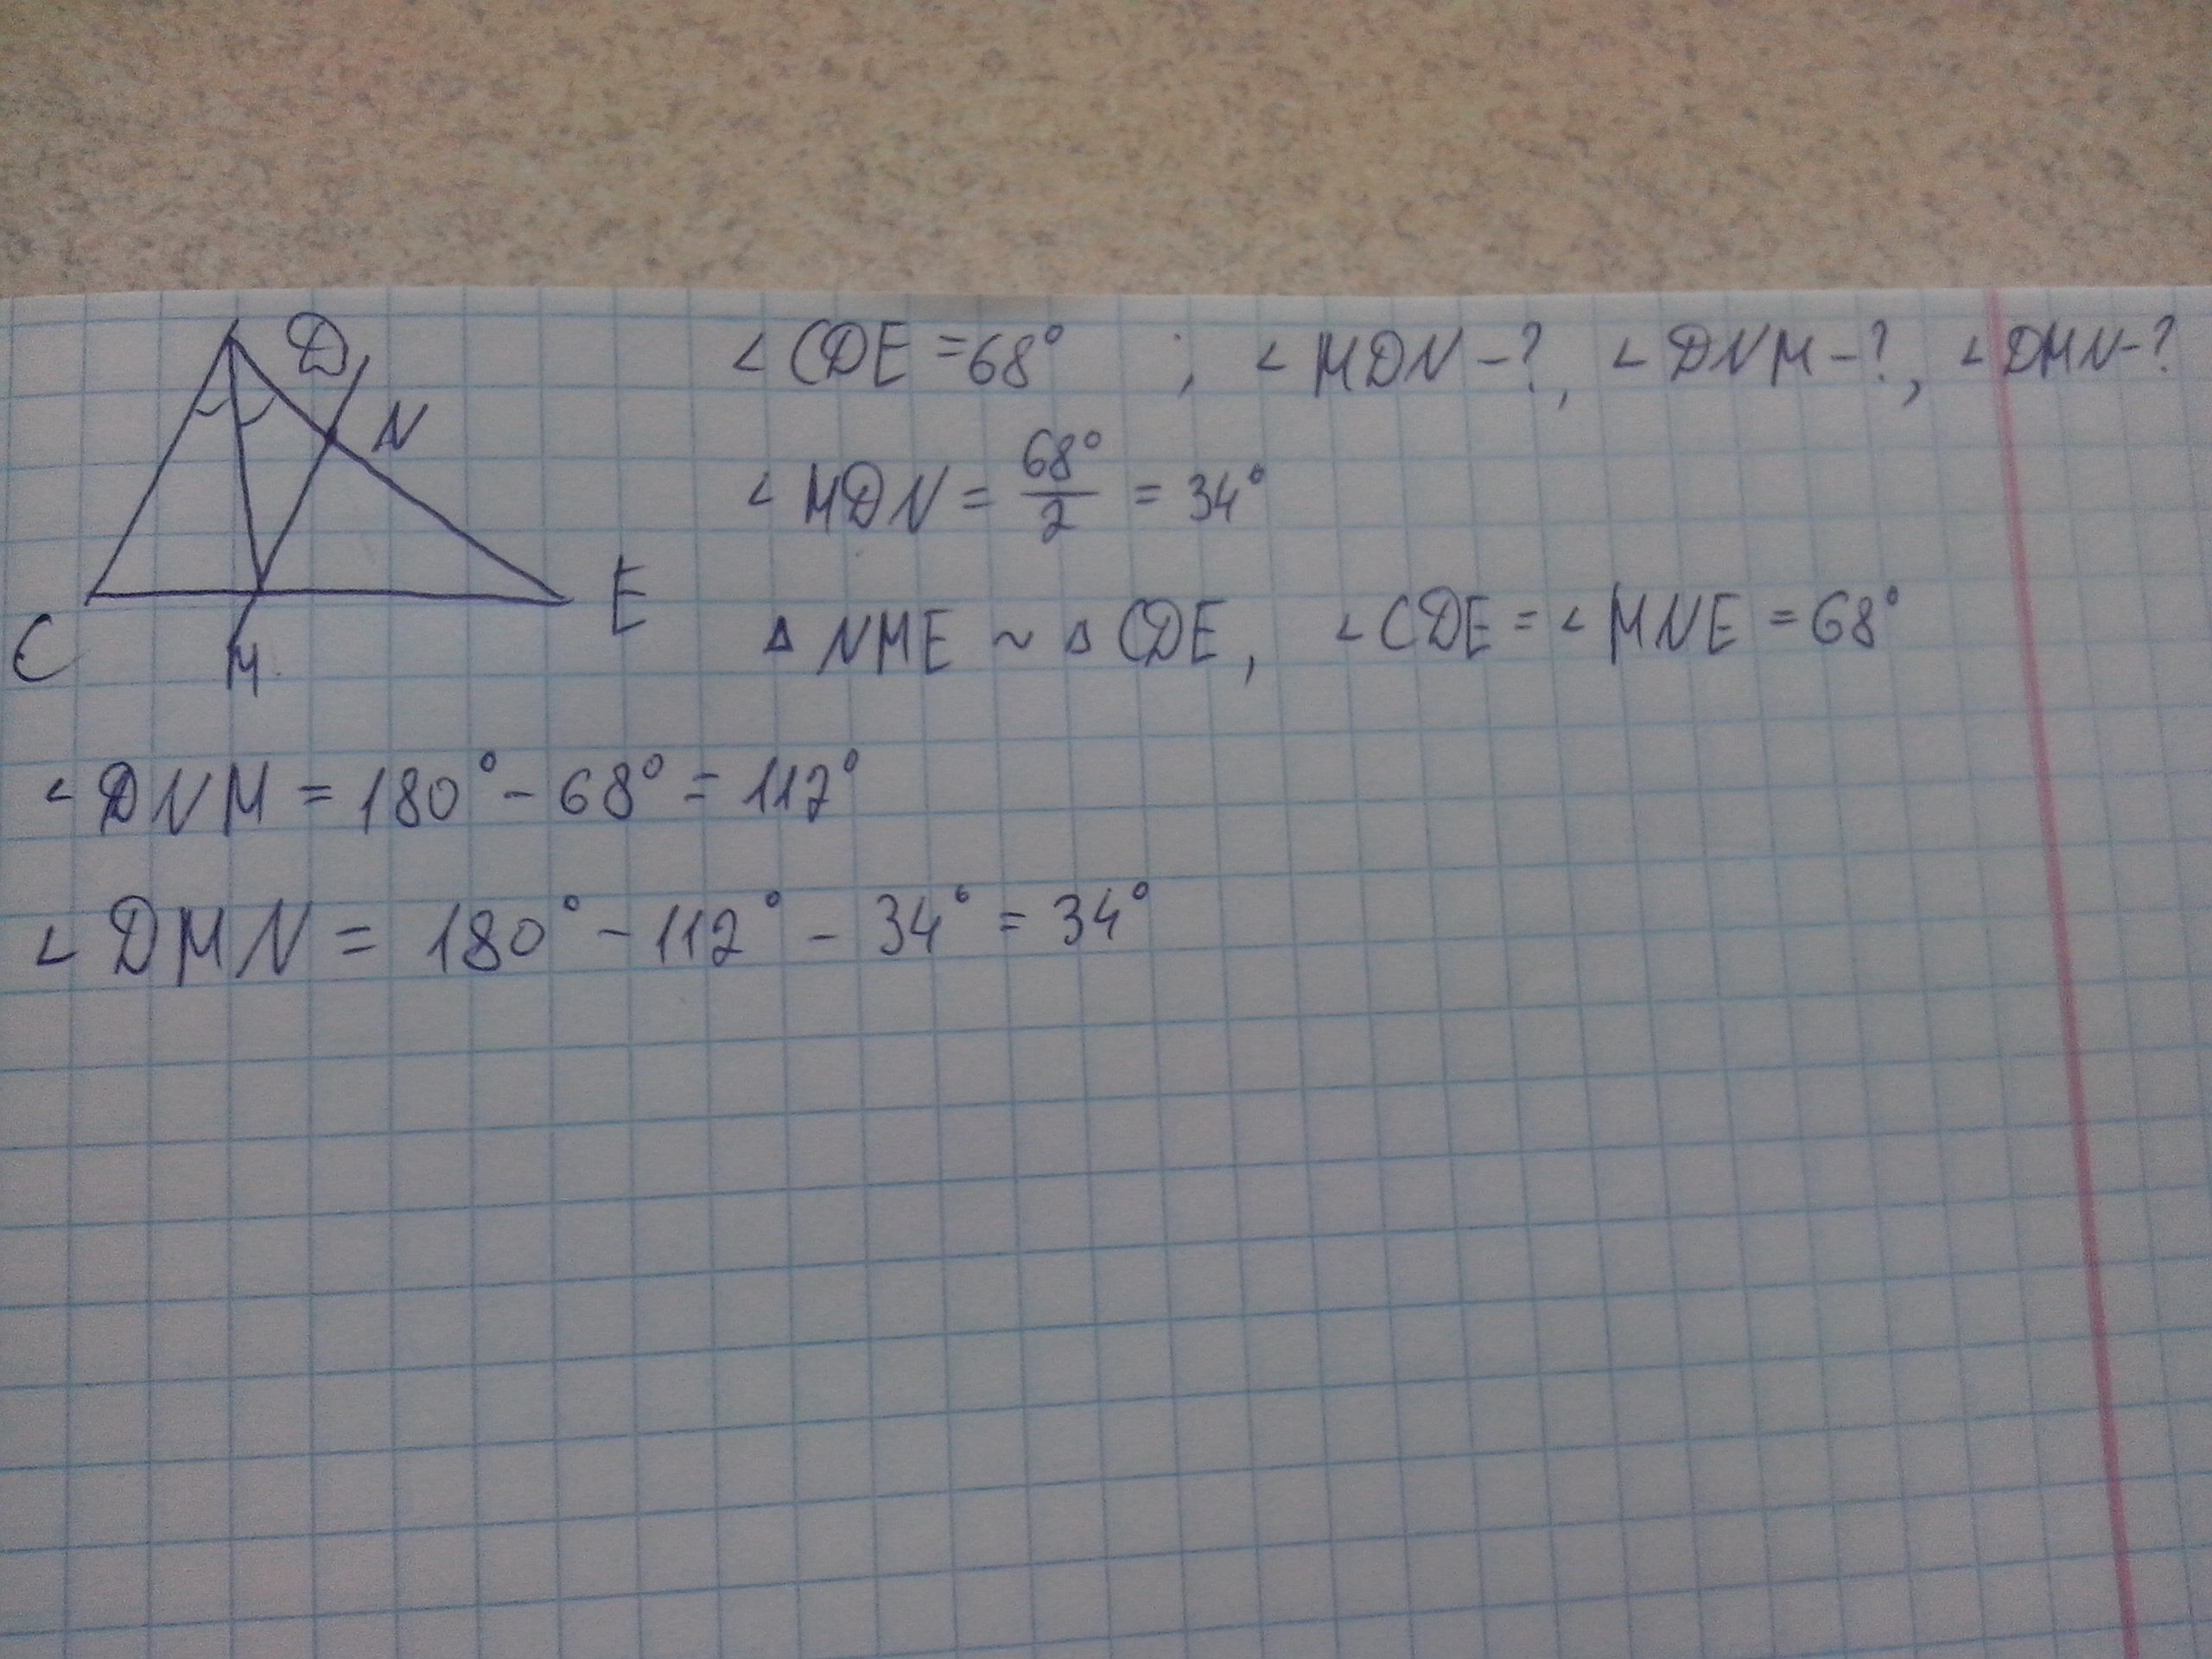 D
N
C
M
E
∠ CDE = 68° ; ∠ MDN – ?, ∠ DNM – ?, ∠ DMN – ?
∠ MDN = 68°/2 = 34°
Δ NME ~ Δ CDE, ∠ CDE = ∠ MNE = 68°
∠ DNM = 180° – 68° = 112°
∠ DMN = 180° – 112° – 34° = 34°